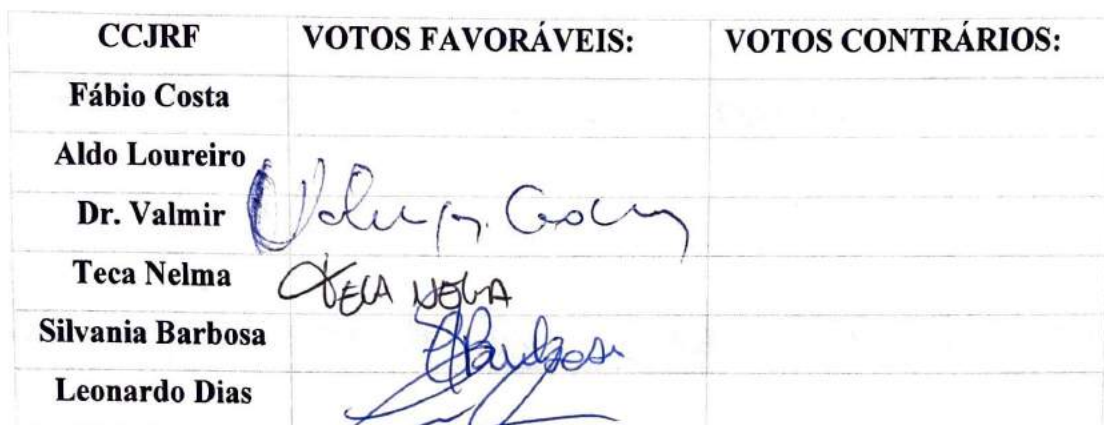 CCJRF VOTOS FAVORÁVEIS: VOTOS CONTRÁRIOS:
Fábio Costa
Aldo Loureiro
Dr. Valmir
Teca Nelma TECA NELMA
Silvania Barbosa Barbosa
Leonardo Dias